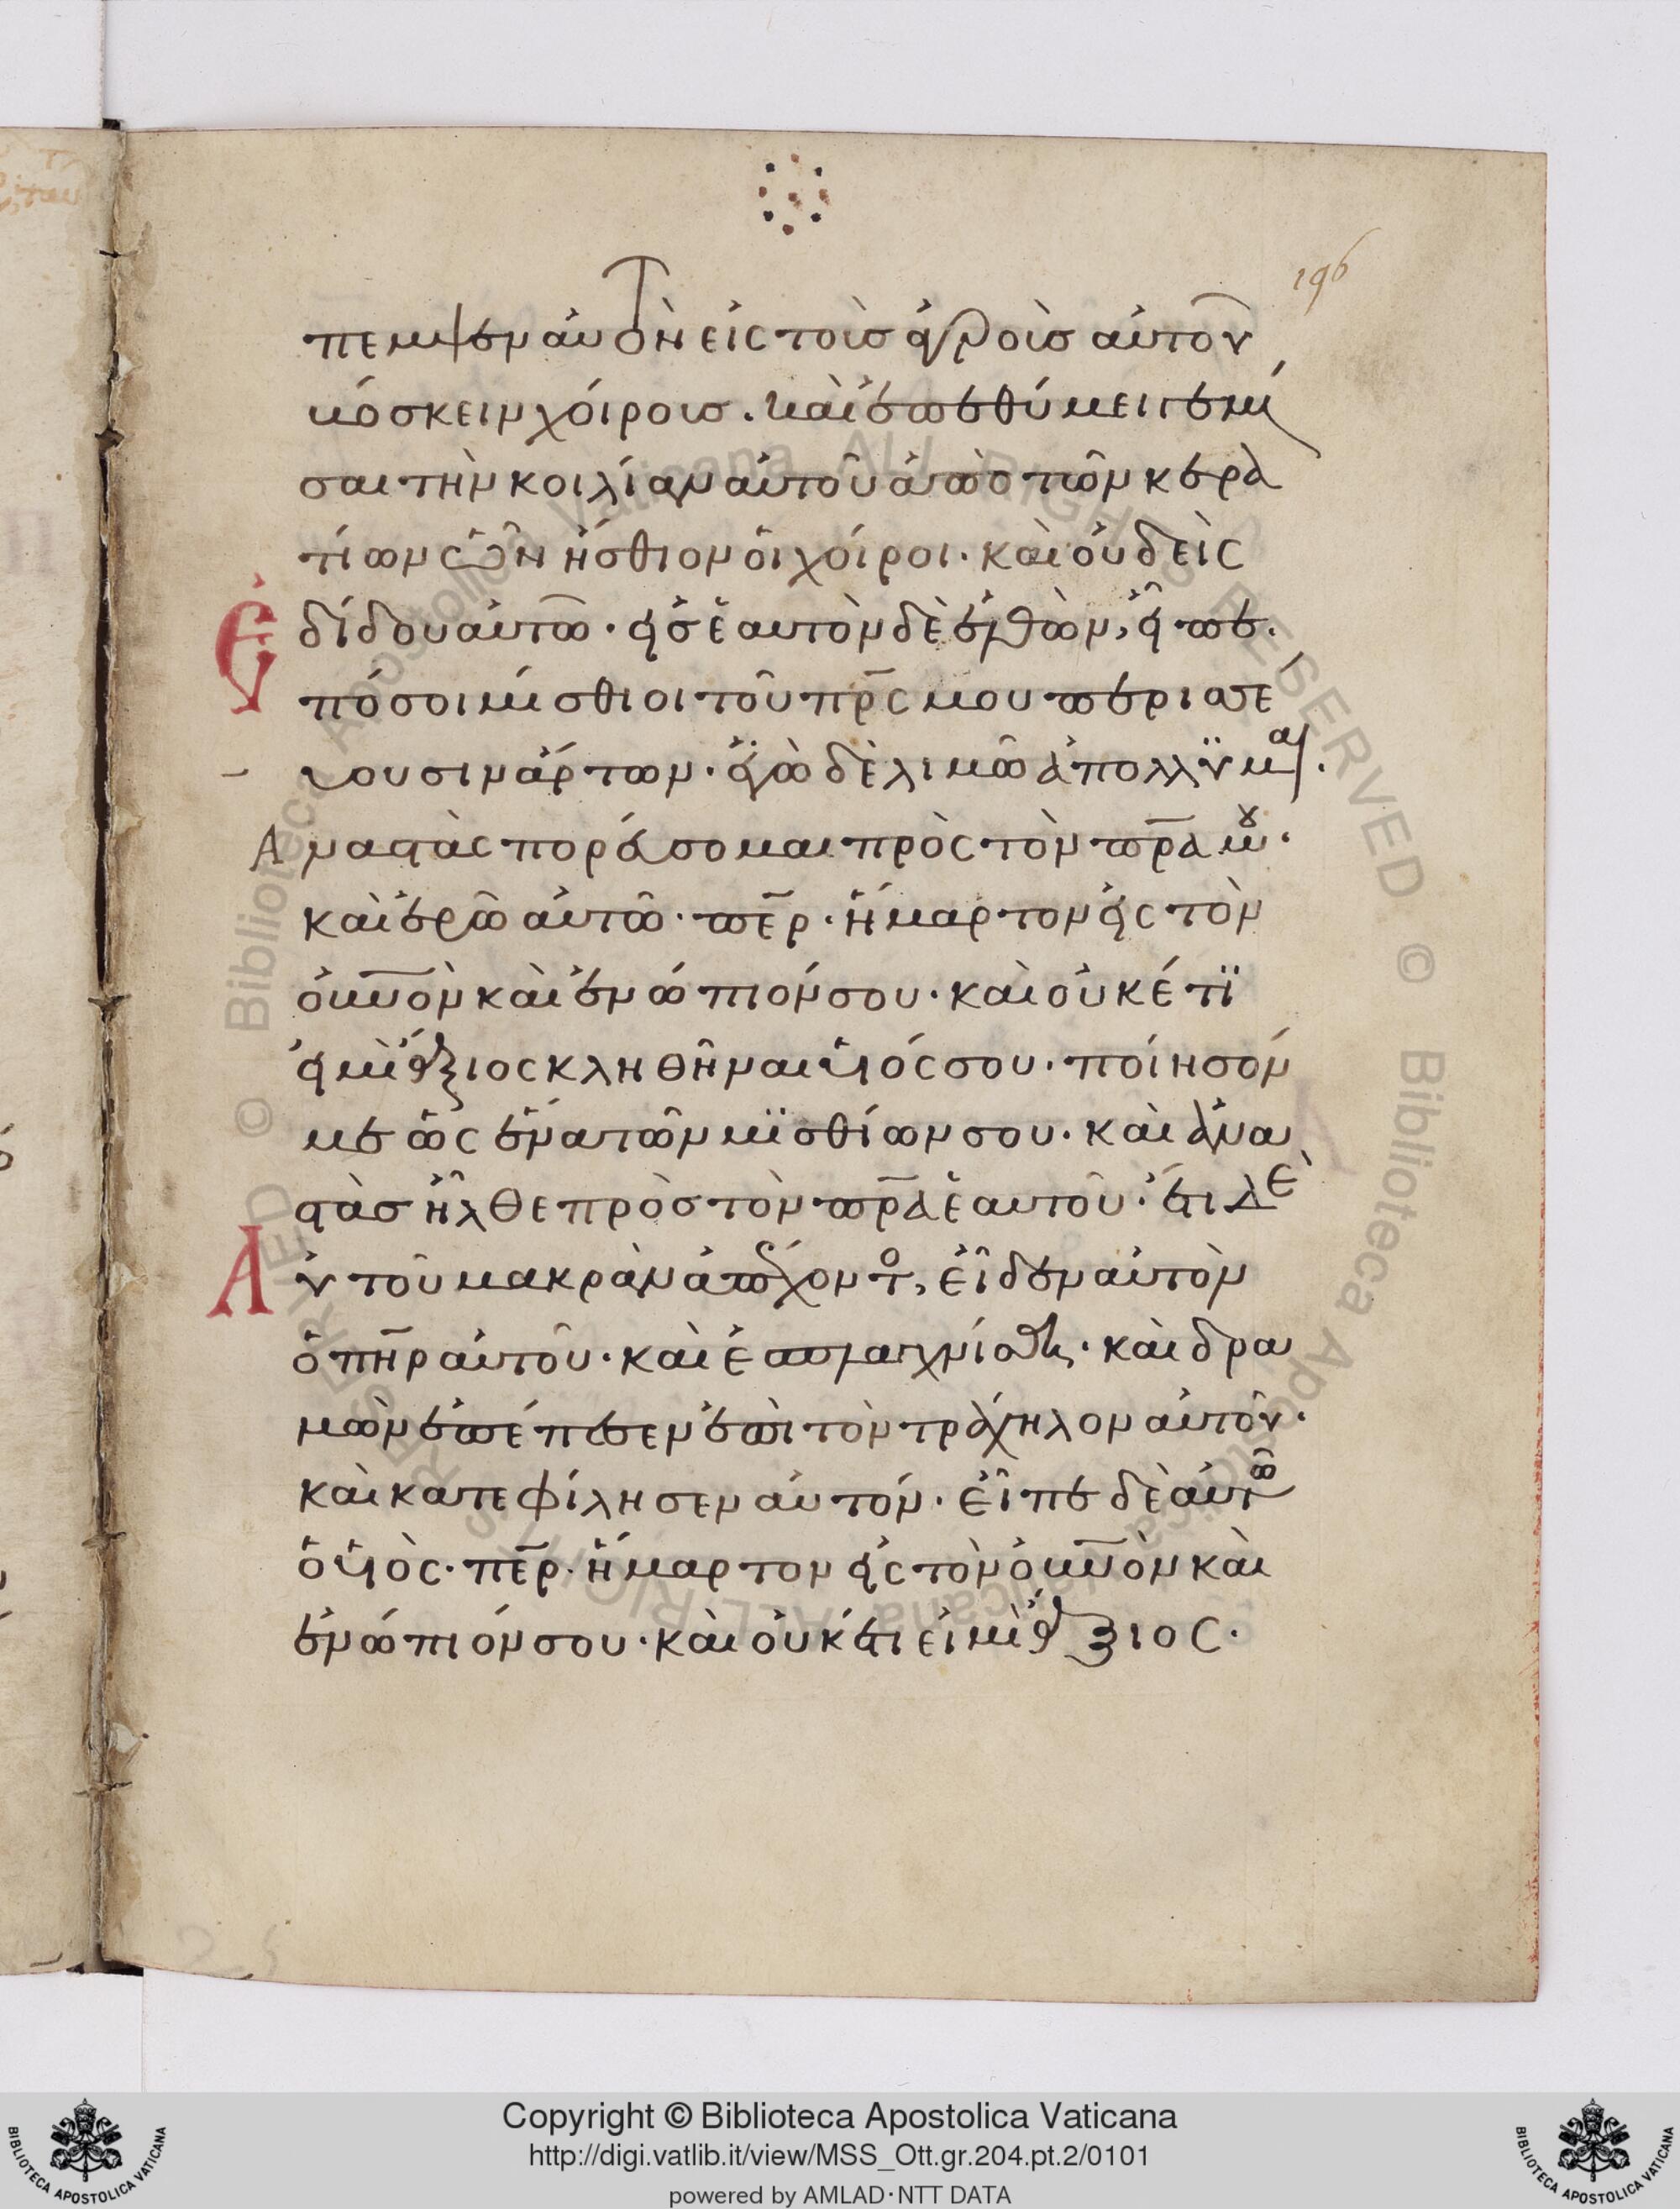 196
πεμψεν αυτὸν εἰς τοὺσ ἀγροὺσ αὐτοῦ
βόσκειν χοίρουσ. καὶ ἐπεθύμει γεμί
σαι τὴν κοιλίαν αὐτοῦ ἀπὸ τῶν κερα
τίων ὧν ἤσθιον ὁι χοίροι. καὶ οὐδεὶς
ἐδίδου αὐτῶ. εἰσ ἑαυτὸν δὲ ἐλθὼν, εἶπε.
πόσοι μίσθιοι τοῦ πρ̅ς μου περισσε
ύουσιν ἄρτων. ἐγὼ δὲ λιμῶ ἀπόλλϋμαι.
Αναστὰς πορεύσομαι πρὸς τὸν πρ̅α μου.
καὶ ἐρῶ αὐτῶ. πε̅ρ. ἥμαρτον εἰς τὸν
ὀυν̅ὸν καὶ ἐνώπιόν σου. καὶ οὐκέτϊ
εἰμὶ ἄξιος κληθῆναι υἱός σου. ποίησόν
με ὡς ἕνα τῶν μϊσθίων σου. καὶ ἀνα
στὰσ ἦλθε πρὸσ τὸν πρ̅α ἑαυτοῦ. ἔτι δὲ
Αὐτοῦ μακρὰν ἀπέχοντος, εἶδεν αὐτὸν
ὁ πη̅ρ αὐτοῦ. καὶ ἐσπλαγχνίσθη. καὶ δρα
μὼν ἐπέπεσεν ἐπὶ τὸν τράχηλον αὐτοῦ.
καὶ κατεφίλησεν αὐτόν. εἶπε δὲ αὐτῶ
ὁ υἱὸς. πε̅ρ. ἥμαρτον εἰς τὸν ὀυν̅ὸν καὶ
ἐνώπιόν σου. καὶ οὐκέτι εἰμὶ ἄξιος.
Copyright © Biblioteca Apostolica Vaticana
http://digi.vatlib.it/view/MSS_Ott.gr.204.pt.2/0101
powered by AMLAD·NTT DATA
BIBLIOTECA APOSTOLICA VATICANA
BIBLIOTECA APOSTOLICA VATICANA
© Biblioteca Apostolica Vaticana ALL RIGHTS RESERVED © Biblioteca Apostolica Vaticana ALL RIGHTS RESERVED